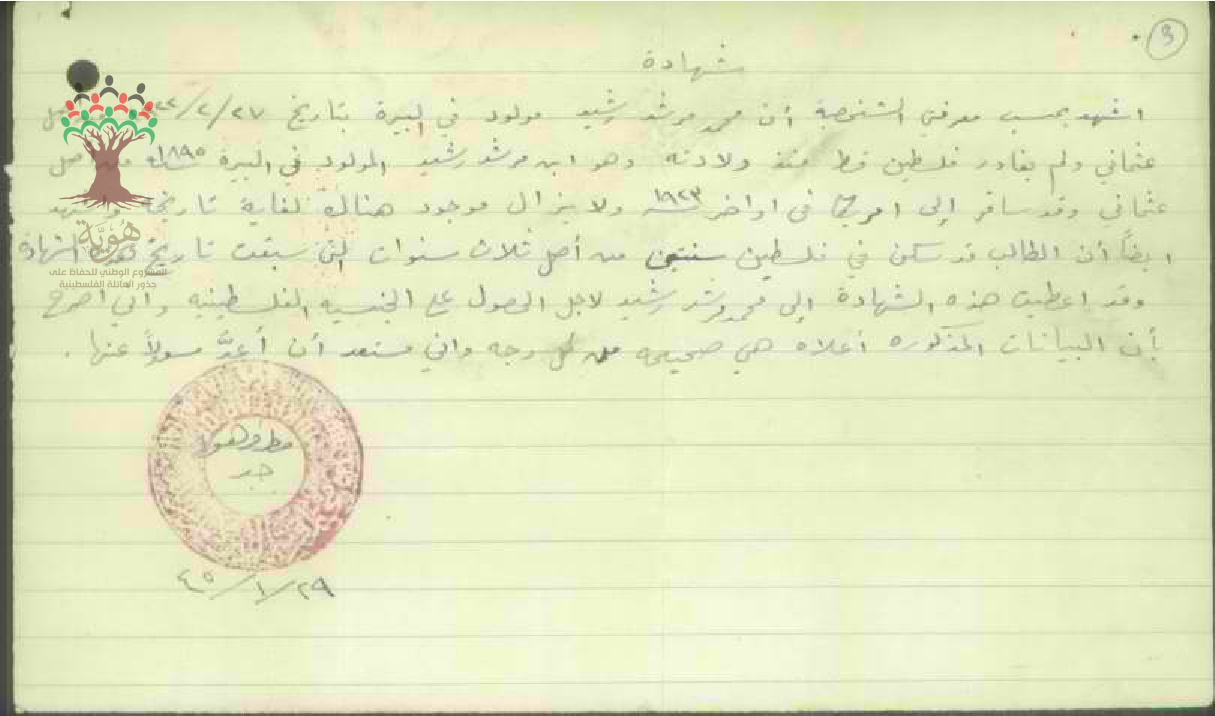 3
شهادة
اشهد بحسب معرفتي الشخصية أن محمد مرشد رشيد مولود في البيرة بتاريخ ٢٧/٢/
عثماني ولم يغادر فلسطين قط منذ ولادته وهو ابن مرشد رشيد المولود في البيرة سنة ١٨٩٥ اصل
عثماني وقد سافر إلى امريكا في اواخر سنة ١٩٢٣ ولا يزال موجود هناك لغاية تاريخه واشهد
ايضاً أن الطالب قد سكن في فلسطين سنتين من أصل ثلاث سنوات التي سبقت تاريخ هذه الشهادة
وقد اعطيت هذه الشهادة إلى محمد مرشد رشيد لاجل الحصول على الجنسيه الفلسطينيه واني اصرح
بأن البيانات المذكوره أعلاه هي صحيحه من كل وجه واني مستعد أن أُعدَّ مسولاً عنها .
٢٩/١/٤٥
هوية
المشروع الوطني للحفاظ على
جذور العائلة الفلسطينية